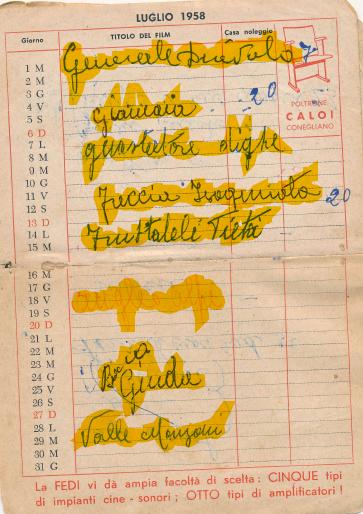 LUGLIO 1958
Giorno TITOLO DEL FILM Casa noleggio
1 M Generale 7
2 M
3 G
4 V 20
5 S
6 D
7 L guastatore dighe
8 M
9 M
10 G
11 V Freccia Insanguinata 20
12 S
13 D
14 L Frustateli Pietà
15 M
16 M
17 G
18 V
19 S
20 D
21 L
22 M
23 M
24 G Giuda
25 V
26 S
27 D
28 L
29 M Valle
30 M
31 G
POLTRONE
CALOI
CONEGLIANO
La FEDI vi dà ampia facoltà di scelta: CINQUE tipi
di impianti cine - sonori; OTTO tipi di amplificatori!